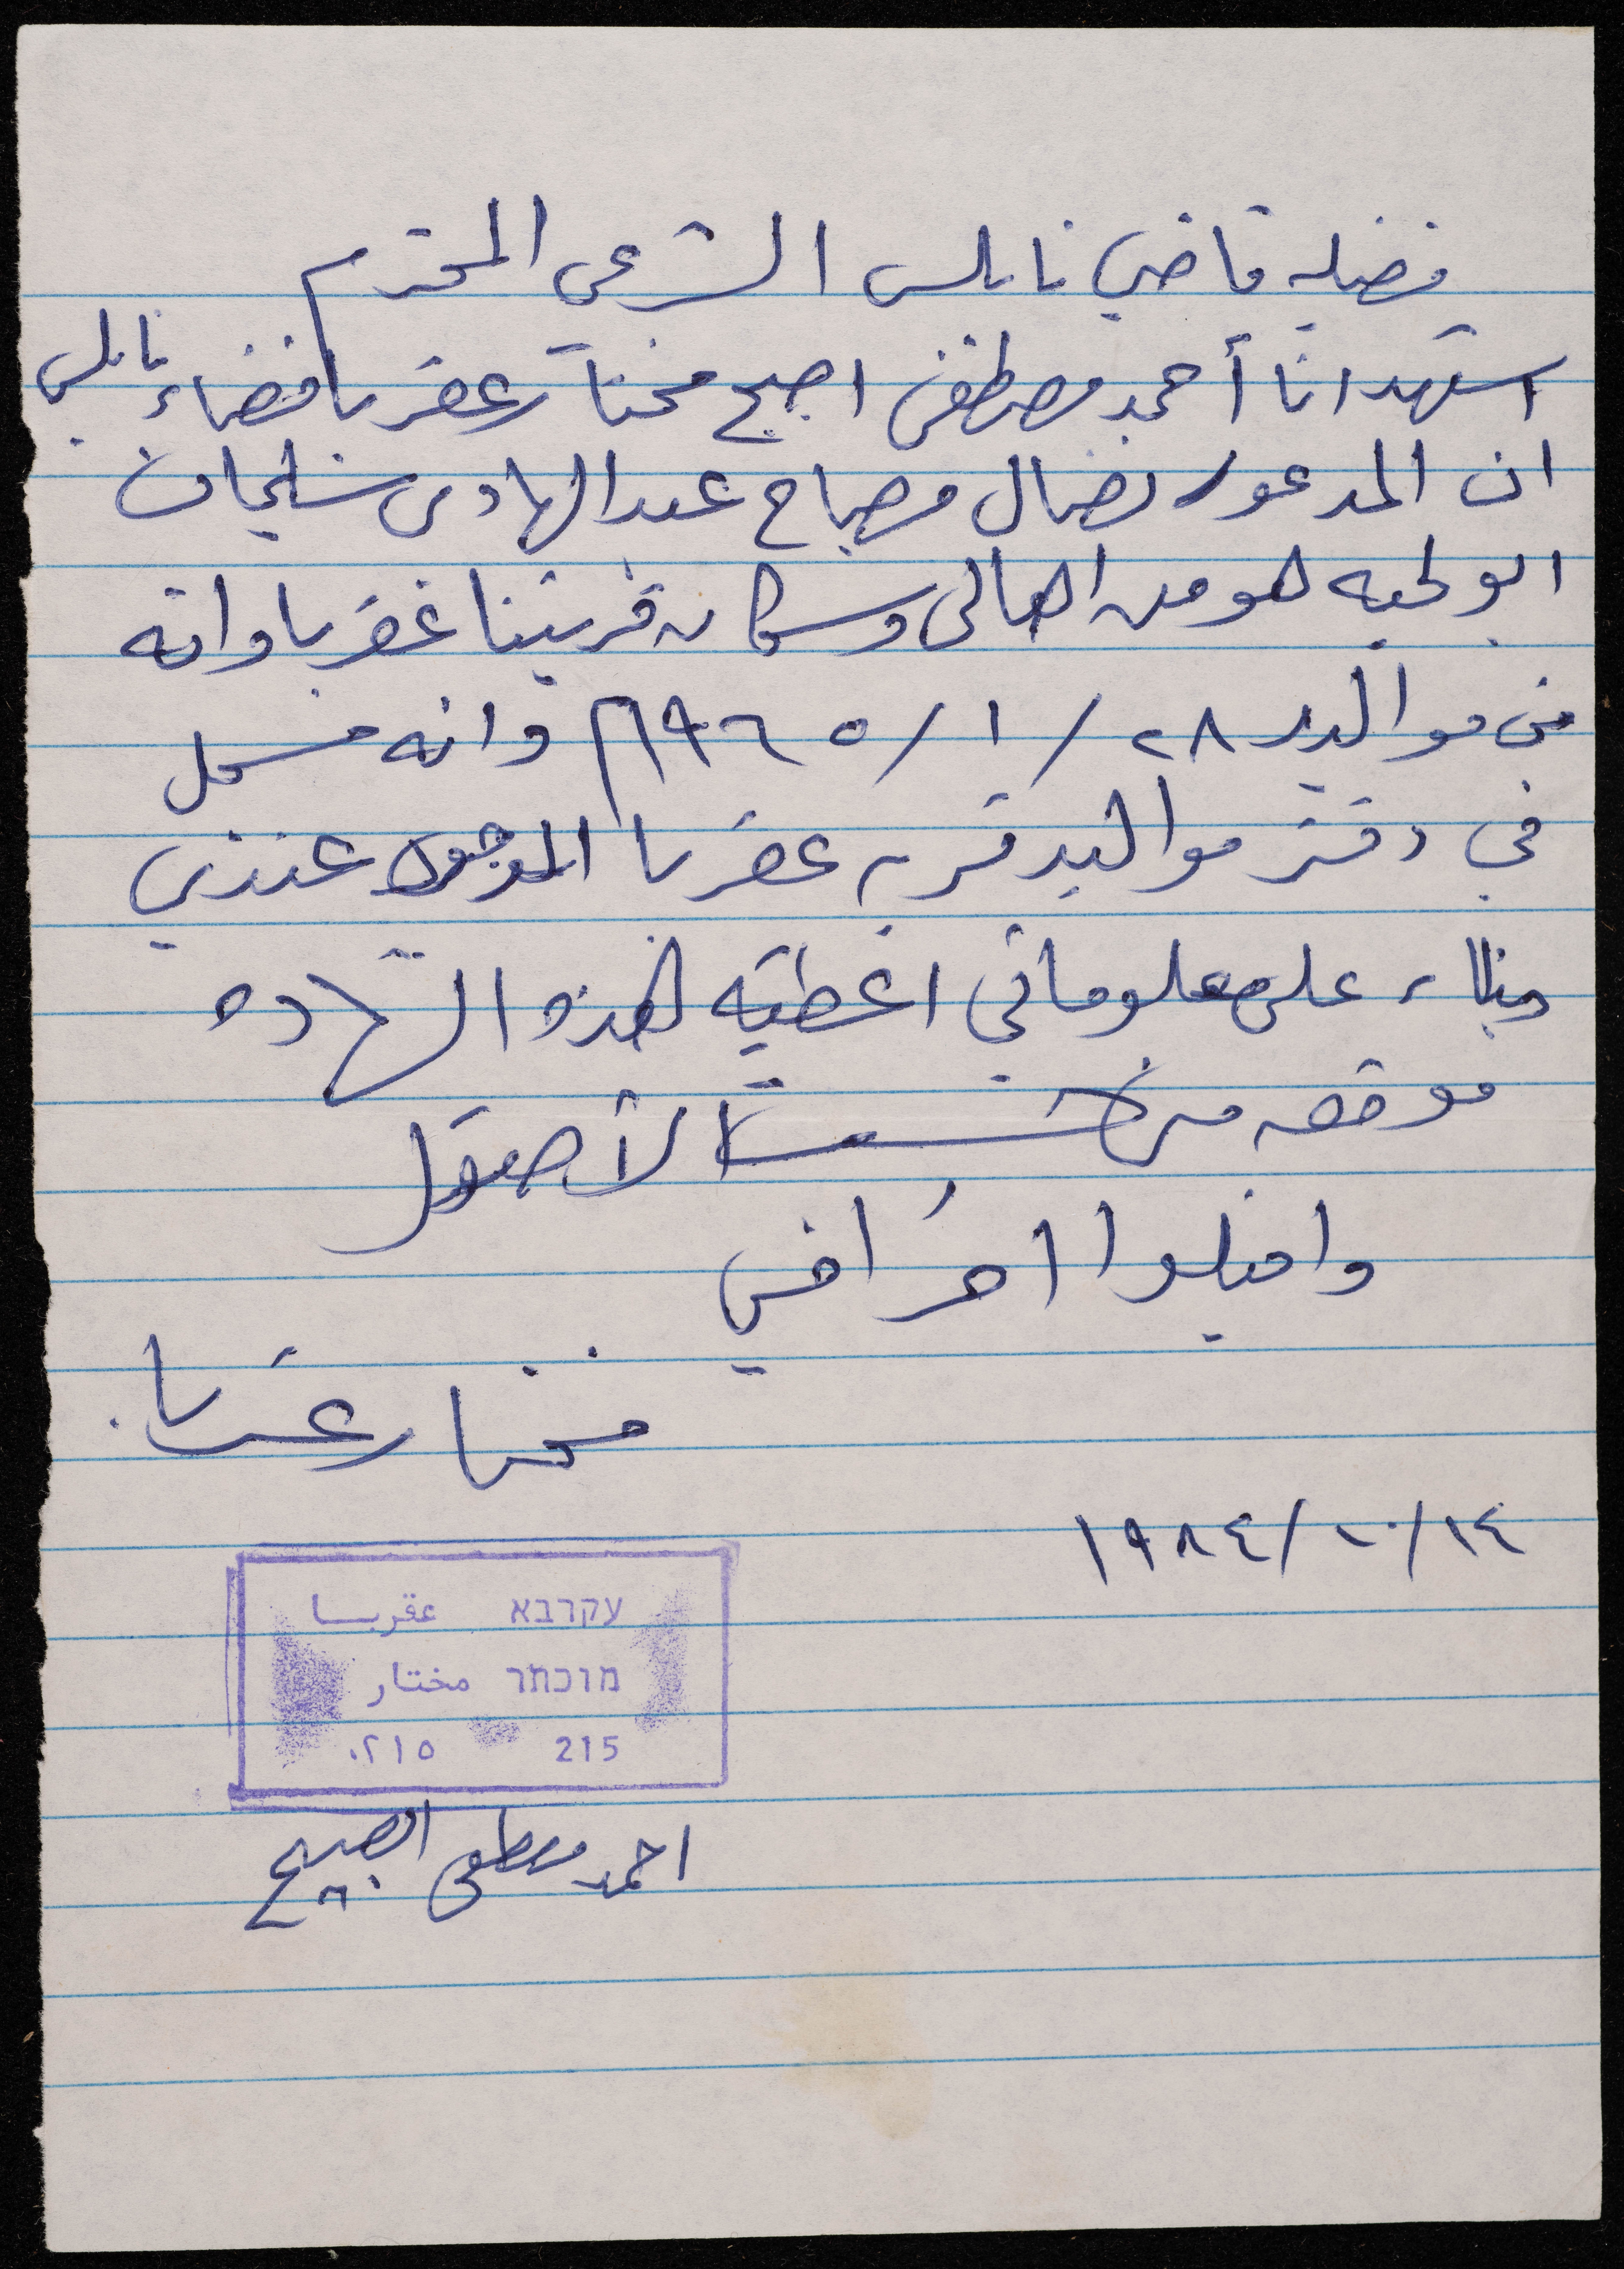 فضيلة قاضي نابلس الشرعي المحترم
اشهد انا أحمد مصطفى اصبح مختار عقربا قضاء نابلس
ان المدعو نضال مصباح عبد الهادي سليمان
ابو لحيه هو من اهالي وسكان قريتنا عقربا وانه
من مواليد ٢٨/١/١٩٦٥ وانه مسجل
في دفتر مواليد قرية عقربا الموجود عندي
وبناء على معلوماتي اعطيته هذه الشهاده
موقعه مني حسب الاصول
واقبلوا احترامي
مختار عقربا
١٤/١٠/١٩٨٤
עקרבא عقربا
מוכתר مختار
215 ٠٢١٥
احمد مصطفى الصبيح